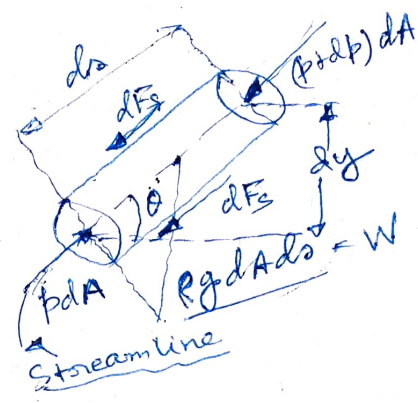 ds
dFs
(p+dp) dA
dy
θ
dFs
pdA
ρgdAds = W
Streamline